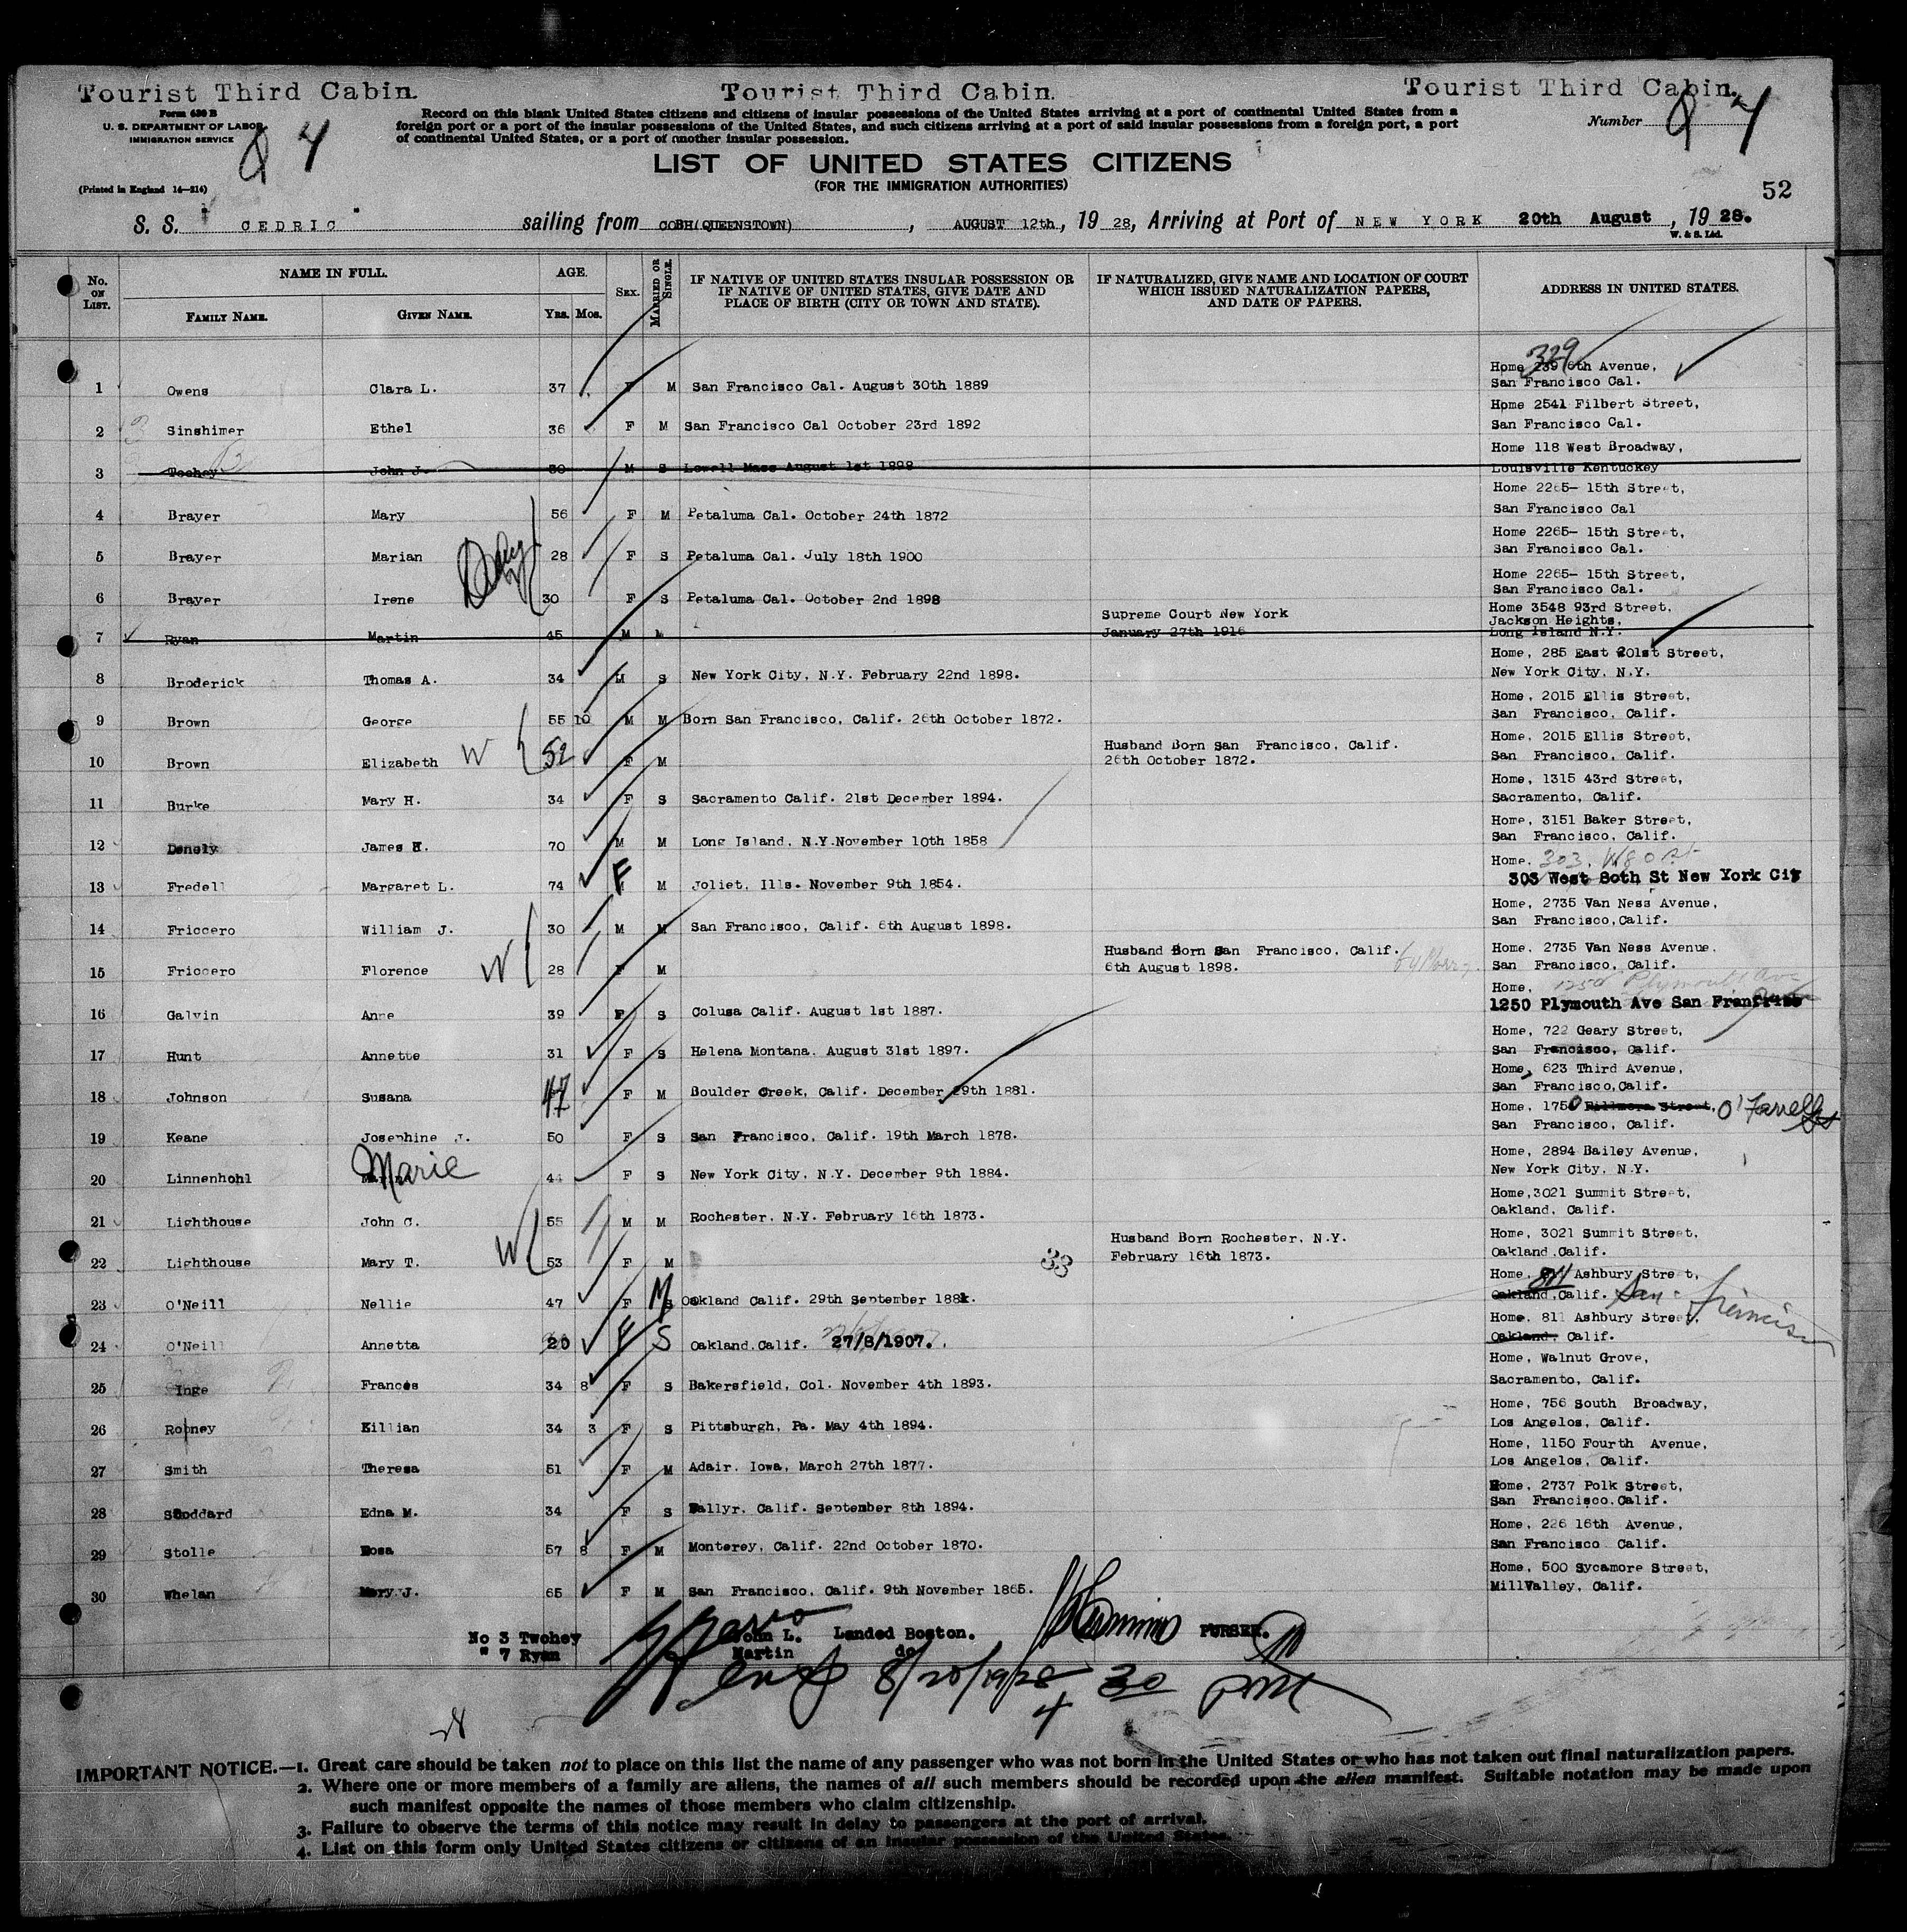 Tourist Third Cabin. Tourist Third Cabin. Tourist Third Cabin.
Form 630 B
U. S. DEPARTMENT OF LABOR
IMMIGRATION SERVICE
(Printed in England 14—214)
4
Record on this blank United States citizens and citizens of insular possessions of the United States arriving at a port of continental United States from a
foreign port or a port of the insular possessions of the United States, and such citizens arriving at a port of said insular possessions from a foreign port, a port
of continental United States, or a port of another insular possession.
Number 4
LIST OF UNITED STATES CITIZENS
(FOR THE IMMIGRATION AUTHORITIES)
52
S. S. " CEDRIC " sailing from COBH(QUEENSTOWN) , AUGUST 12th, 19 28, Arriving at Port of NEW YORK 20th August , 19 28.
W. & S. Ltd.
No. ON LIST. NAME IN FULL. FAMILY NAME. GIVEN NAME. AGE. YRS. MOS. SEX. MARRIED OR SINGLE. IF NATIVE OF UNITED STATES INSULAR POSSESSION OR IF NATIVE OF UNITED STATES, GIVE DATE AND PLACE OF BIRTH (CITY OR TOWN AND STATE). IF NATURALIZED, GIVE NAME AND LOCATION OF COURT WHICH ISSUED NATURALIZATION PAPERS, AND DATE OF PAPERS. ADDRESS IN UNITED STATES.
1 Owens Clara L. 37 F M San Francisco Cal. August 30th 1889 Home 329 6th Avenue, San Francisco Cal.
2 Sinshimer Ethel 36 F M San Francisco Cal October 23rd 1892 Home 2541 Filbert Street, San Francisco Cal.
3 Tochey John J. 30 M S Lowell Mass August 1st 1898 Home 118 West Broadway, Louisville Kentuckey
4 Brayer Mary 56 F M Petaluma Cal. October 24th 1872 Home 2265- 15th Street, San Francisco Cal
5 Brayer Marian 28 F S Petaluma Cal. July 18th 1900 Home 2265- 15th Street, San Francisco Cal.
6 Brayer Irene 30 F S Petaluma Cal. October 2nd 1898 Home 2265- 15th Street, San Francisco Cal.
7 Ryan Martin 45 M M Supreme Court New York January 27th 1916 Home 3548 93rd Street, Jackson Heights, Long Island N.Y.
8 Broderick Thomas A. 34 M S New York City, N.Y. February 22nd 1898. Home, 285 East 201st Street, New York City, N.Y.
9 Brown George 55 10 M M Born San Francisco, Calif. 26th October 1872. Home, 2015 Ellis Street, San Francisco, Calif.
10 Brown Elizabeth W 52 F M Husband Born San Francisco, Calif. 26th October 1872. Home, 2015 Ellis Street, San Francisco, Calif.
11 Burke Mary H. 34 F S Sacramento Calif. 21st December 1894. Home, 1315 43rd Street, Sacramento, Calif.
12 Denely James H. 70 M M Long Island, N.Y. November 10th 1858 Home, 3151 Baker Street, San Francisco, Calif.
13 Fredell Margaret L. 74 F M Joliet, Ills. November 9th 1854. Home, 303, W 80 St 303 West 80th St New York City
14 Friccero William J. 30 M M San Francisco, Calif. 6th August 1898. Home, 2735 Van Ness Avenue, San Francisco, Calif.
15 Friccero Florence W 28 F M Husband Born San Francisco, Calif. 6th August 1898. Home, 2735 Van Ness Avenue, San Francisco, Calif.
16 Galvin Anne 39 F S Colusa Calif. August 1st 1887. Home, 1250 Plymouth Ave 1250 Plymouth Ave San Franfrisb
17 Hunt Annette 31 F S Helena Montana, August 31st 1897. Home, 722 Geary Street, San Francisco, Calif.
18 Johnson Susana 47 F M Boulder Creek, Calif. December 29th 1881. Home, 623 Third Avenue, San Francisco, Calif.
19 Keane Josephine J. 50 F S San Francisco, Calif. 19th March 1878. Home, 1750 Fillmore Street, O'Farrell St San Francisco, Calif.
20 Linnenhohl Marie 44 F S New York City, N.Y. December 9th 1884. Home, 2894 Bailey Avenue, New York City, N.Y.
21 Lighthouse John C. 55 M M Rochester, N.Y. February 16th 1873. Home, 3021 Summit Street, Oakland, Calif.
22 Lighthouse Mary T. W 53 F M 33 Husband Born Rochester, N.Y. February 16th 1873. Home, 3021 Summit Street, Oakland, Calif.
23 O'Neill Nellie 47 F M Oakland Calif. 29th September 1881. Home, 811 Ashbury Street, Oakland, Calif. San Francisco
24 O'Neill Annetta 20 F S Oakland, Calif. 27/8/1907. Home, 811 Ashbury Street, Oakland, Calif.
25 Inge Frances 34 8 F S Bakersfield, Col. November 4th 1893. Home, Walnut Grove, Sacramento, Calif.
26 Rooney Killian 34 3 F S Pittsburgh, Pa. May 4th 1894. Home, 756 South Broadway, Los Angelos, Calif.
27 Smith Theresa 51 F M Adair, Iowa, March 27th 1877. Home, 1150 Fourth Avenue, Los Angelos, Calif.
28 Stoddard Edna M. 34 F S Fallyr, Calif. September 8th 1894. Home, 2737 Polk Street, San Francisco, Calif.
29 Stolle Rosa 57 8 F M Monterey, Calif. 22nd October 1870. Home, 226 16th Avenue, San Francisco Calif.
30 Whelan Mary J. 65 F M San Francisco, Calif. 9th November 1865. Home, 500 Sycamore Street, MillValley, Calif.
No 3 Twohey John L. Landed Boston. PURSER.
" 7 Ryan Martin do
8/20/1928 4 30 pm
IMPORTANT NOTICE.—1. Great care should be taken not to place on this list the name of any passenger who was not born in the United States or who has not taken out final naturalization papers.
2. Where one or more members of a family are aliens, the names of all such members should be recorded upon the alien manifest. Suitable notation may be made upon
such manifest opposite the names of those members who claim citizenship.
3. Failure to observe the terms of this notice may result in delay to passengers at the port of arrival.
4. List on this form only United States citizens or citizens of an insular possession of the United States.